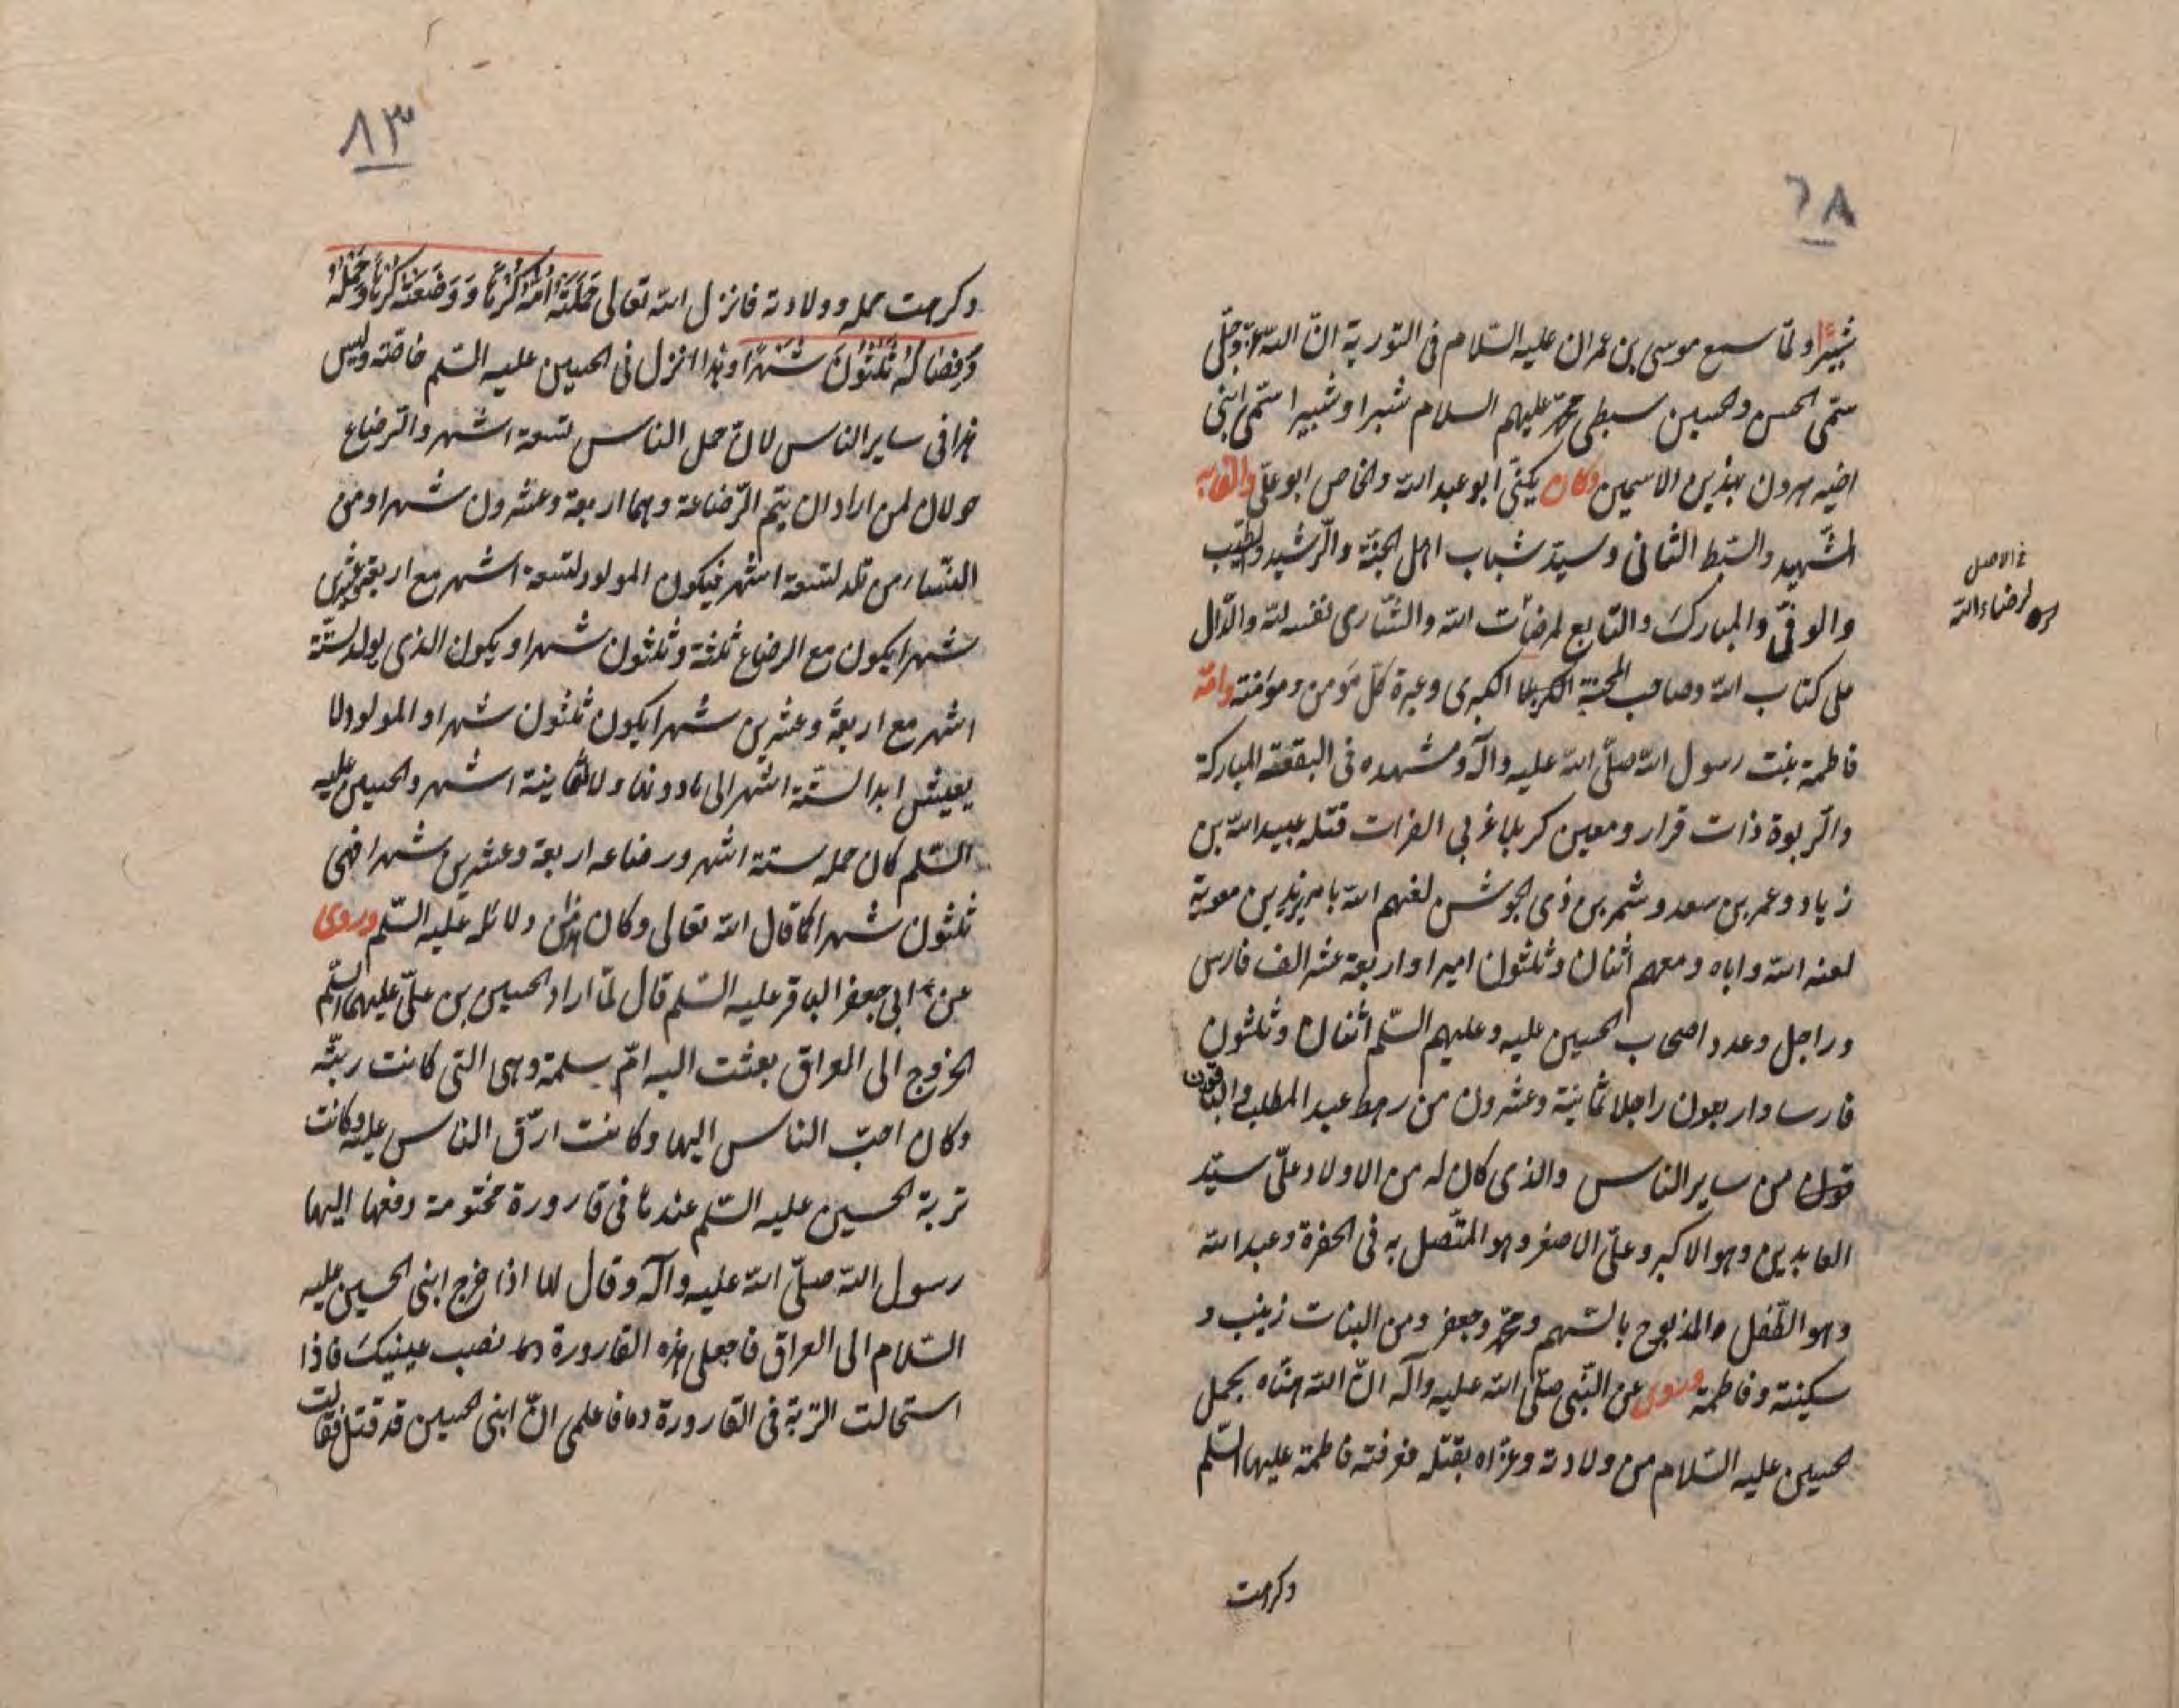 ٦٨
شبيرا ولما سمع موسى بن عمران عليه السلام فى التورية ان الله عز وجل
سمى الحسن والحسين سبطى محمد عليهم السلام شبرا وشبيرا سمى ابنى
اخيه هرون بهذين الاسمين وكان يكنى ابو عبد الله والخاص ابو على والقابه
الشهيد والسبط الثانى وسيد شباب اهل الجنة والرشيد والطيب
والوفى والمبارك والتابع لمرضات الله والشارى نفسه لله والدال
على كتاب الله وصاحب المحنة الكبرى وعبرة كل مؤمن ومؤمنة وامه
فاطمة بنت رسول الله صلى الله عليه وآله ومشهده فى البقعة المباركة
والربوة ذات قرار ومعين كربلا غربى الفرات قتله عبيد الله بن
زياد وعمر بن سعد وشمر بن ذى الجوشن لعنهم الله بامر يزيد بن معوية
لعنه الله واباه ومعهم اثنان وثلثون اميرا واربعة عشر الف فارس
وراجل وعدد اصحاب الحسين عليه وعليهم السلم اثنان وثلثون
فارسا واربعون راجلا ثمانية وعشرون من رهط عبد المطلب والباقون
من ساير الناس والذى كان له من الاولاد على سيد
العابدين وهو الاكبر وعلى الاصغر وهو المتصل به فى الحفرة وعبد الله
وهو الطفل والمذبوح بالسهم ومحمد وجعفر ومن البنات زينب و
سكينة وفاطمة وروى عن النبى صلى الله عليه وآله ان الله هناه بحمل
الحسين عليه السلام من ولادته وعزاه بقتله فعرفته فاطمة عليها السلم
وكرهت
فى الاصل
لرضاء الله
٨٣
وكرهت حمله وولادته فانزل الله تعالى حَمَلَتْهُ اُمُّهُ كُرْهًا وَوَضَعَتْهُ كُرْهًا وَحَمْلُهُ
وَفِصَالُهُ ثَلٰثُونَ شَهْرًا وهذا انزل فى الحسين عليه السلم خاصة وليس
هذا فى ساير الناس لان حمل الناس تسعة اشهر والرضاع
حولان لمن اراد ان يتم الرضاعة وهما اربعة وعشرون شهرا ومن
النساء من تلد لتسعة اشهر فيكون المولود لتسعة اشهر مع اربعة وعشرين
شهرا يكون مع الرضاع ثلثة وثلثون شهرا ويكون الذى يولد لستة
اشهر مع اربعة وعشرين شهرا يكون ثلثون شهرا والمولود لا
يعيش ابدا لستة اشهر الى مادونها ولا لثمانية اشهر والحسين عليه
السلم كان حمله ستة اشهر ورضاعه اربعة وعشرين شهرا فهى
ثلثون شهرا كما قال الله تعالى وكان من دلائله عليه السلم وروى
عن ابى جعفر الباقر عليه السلم قال لما اراد الحسين بن على عليهما السلم
الخروج الى العراق بعثت اليه ام سلمة وهى التى كانت ربته
وكان احب الناس اليها وكانت ارق الناس عليه وكانت
تربة الحسين عليه السلم عندها فى قارورة مختومة دفعها اليها
رسول الله صلى الله عليه وآله وقال لها اذا خرج ابنى الحسين عليه
السلام الى العراق فاجعلى هذه القارورة نصب عينيك فاذا
استحالت التربة فى القارورة دما فاعلمى ان ابنى الحسين قد قتل فقالت